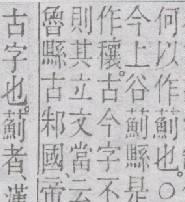 何以作薊也○
今上谷薊縣是
作穰古今字不
則其立文當云
魯縣古邾國帝
古字也薊者漢